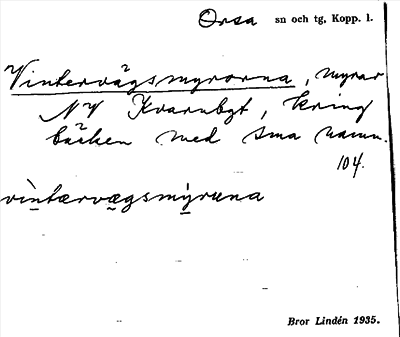 Orsa sn och tg, Kopp. l.
Vintervägsmyrorna, myrar
NV Kvarnbgt, kring
bäcken med sma namn.
104.
vìntærvægsmýruna
Bror Lindén 1935.